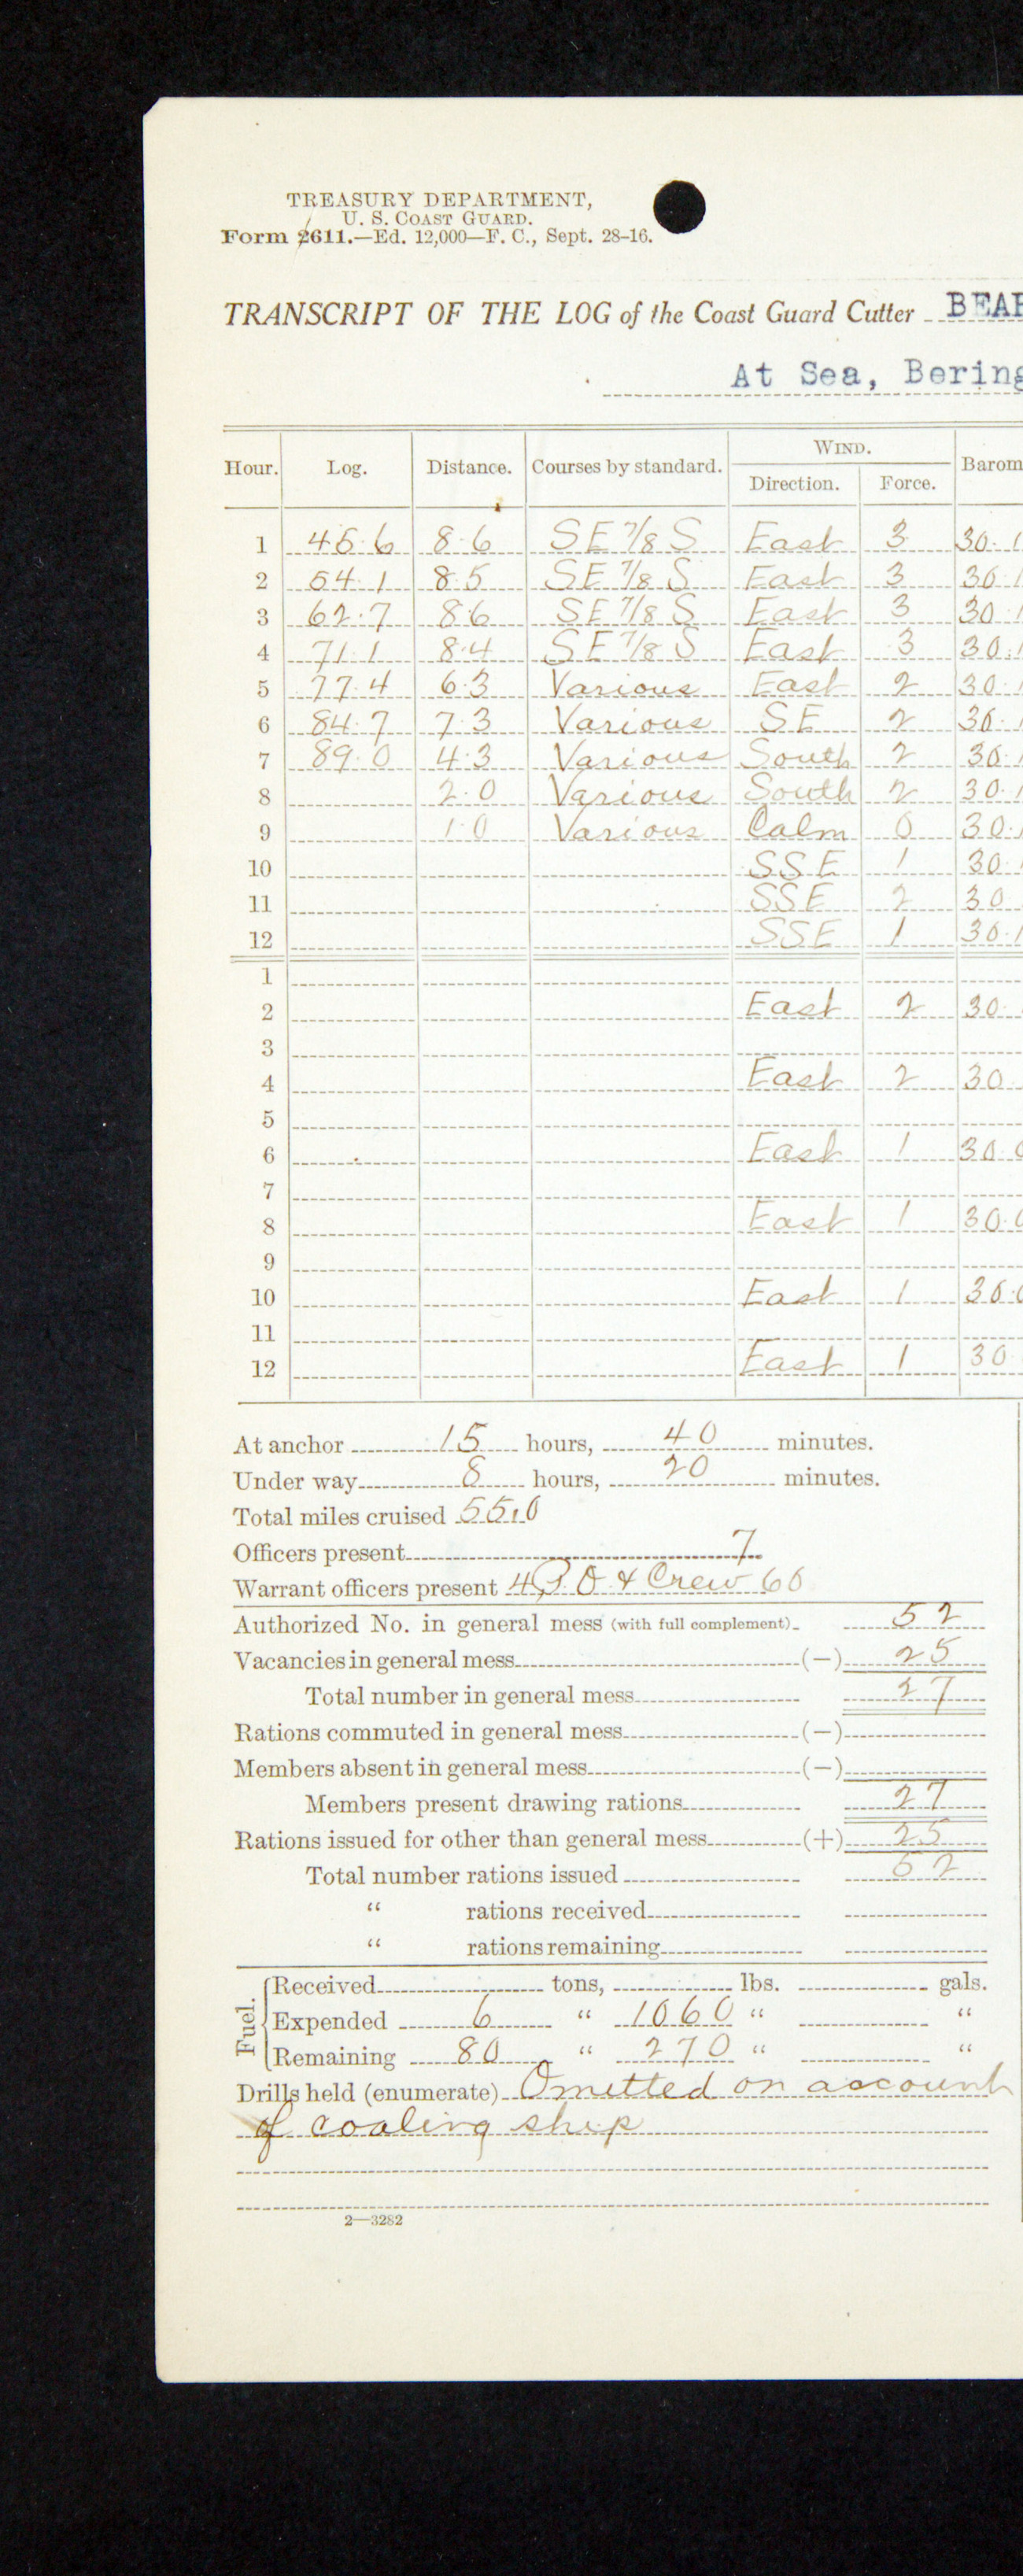 TREASURY DEPARTMENT,
U. S. COAST GUARD.
Form 2611.—Ed. 12,000—F. C., Sept. 28-16.
TRANSCRIPT OF THE LOG of the Coast Guard Cutter BEAR
At Sea, Bering
WIND.
Hour. Log. Distance. Courses by standard. Direction. Force. Barom
1 45.6 8.6 SE 7/8 S East 3 30.1
2 54.1 8.5 SE 7/8 S East 3 30.1
3 62.7 8.6 SE 7/8 S East 3 30.1
4 71.1 8.4 SE 7/8 S East 3 30.1
5 77.4 6.3 Various East 2 30.1
6 84.7 7.3 Various SE 2 30.1
7 89.0 4.3 Various South 2 30.1
8 2.0 Various South 2 30.1
9 1.0 Various Calm 0 30.1
10 SSE 1 30.1
11 SSE 2 30
12 SSE 1 30.1
1
2 East 2 30.
3
4 East 2 30
5
6 East 1 30.0
7
8 East 1 30.0
9
10 East 1 30.0
11
12 East 1 30.
At anchor 15 hours, 40 minutes.
Under way 8 hours, 20 minutes.
Total miles cruised 55.0
Officers present 7
Warrant officers present 4 P.O & Crew 60
Authorized No. in general mess (with full complement) 52
Vacancies in general mess (—) 25
Total number in general mess 27
Rations commuted in general mess (—)
Members absent in general mess (—)
Members present drawing rations 27
Rations issued for other than general mess (+) 25
Total number rations issued 52
“ rations received
“ rations remaining
Fuel. Received tons, lbs. gals.
Expended 6 “ 1060 “ “
Remaining 80 “ 270 “ “
Drills held (enumerate) Omitted on account
of coaling ship
2—3282